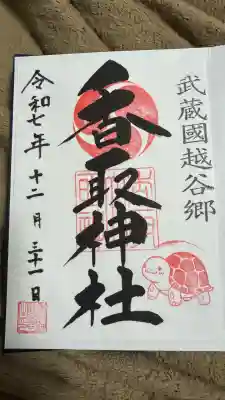 武蔵國越谷郷
香取神社
令和七年十二月三十一日